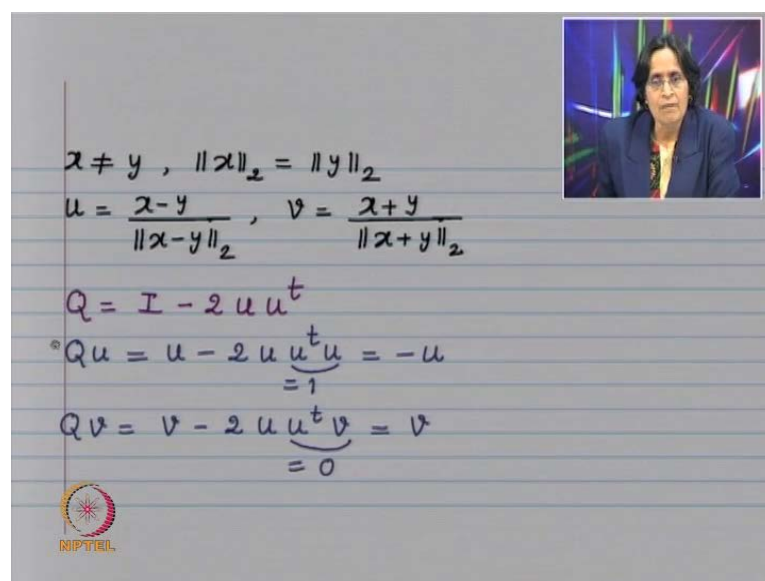 x ≠ y , ||x||₂ = ||y||₂
u = x-y / ||x-y||₂ , v = x+y / ||x+y||₂
Q = I - 2 u uᵗ
Qu = u - 2 u uᵗu = -u
= 1
Qv = v - 2 u uᵗ v = v
= 0
NPTEL